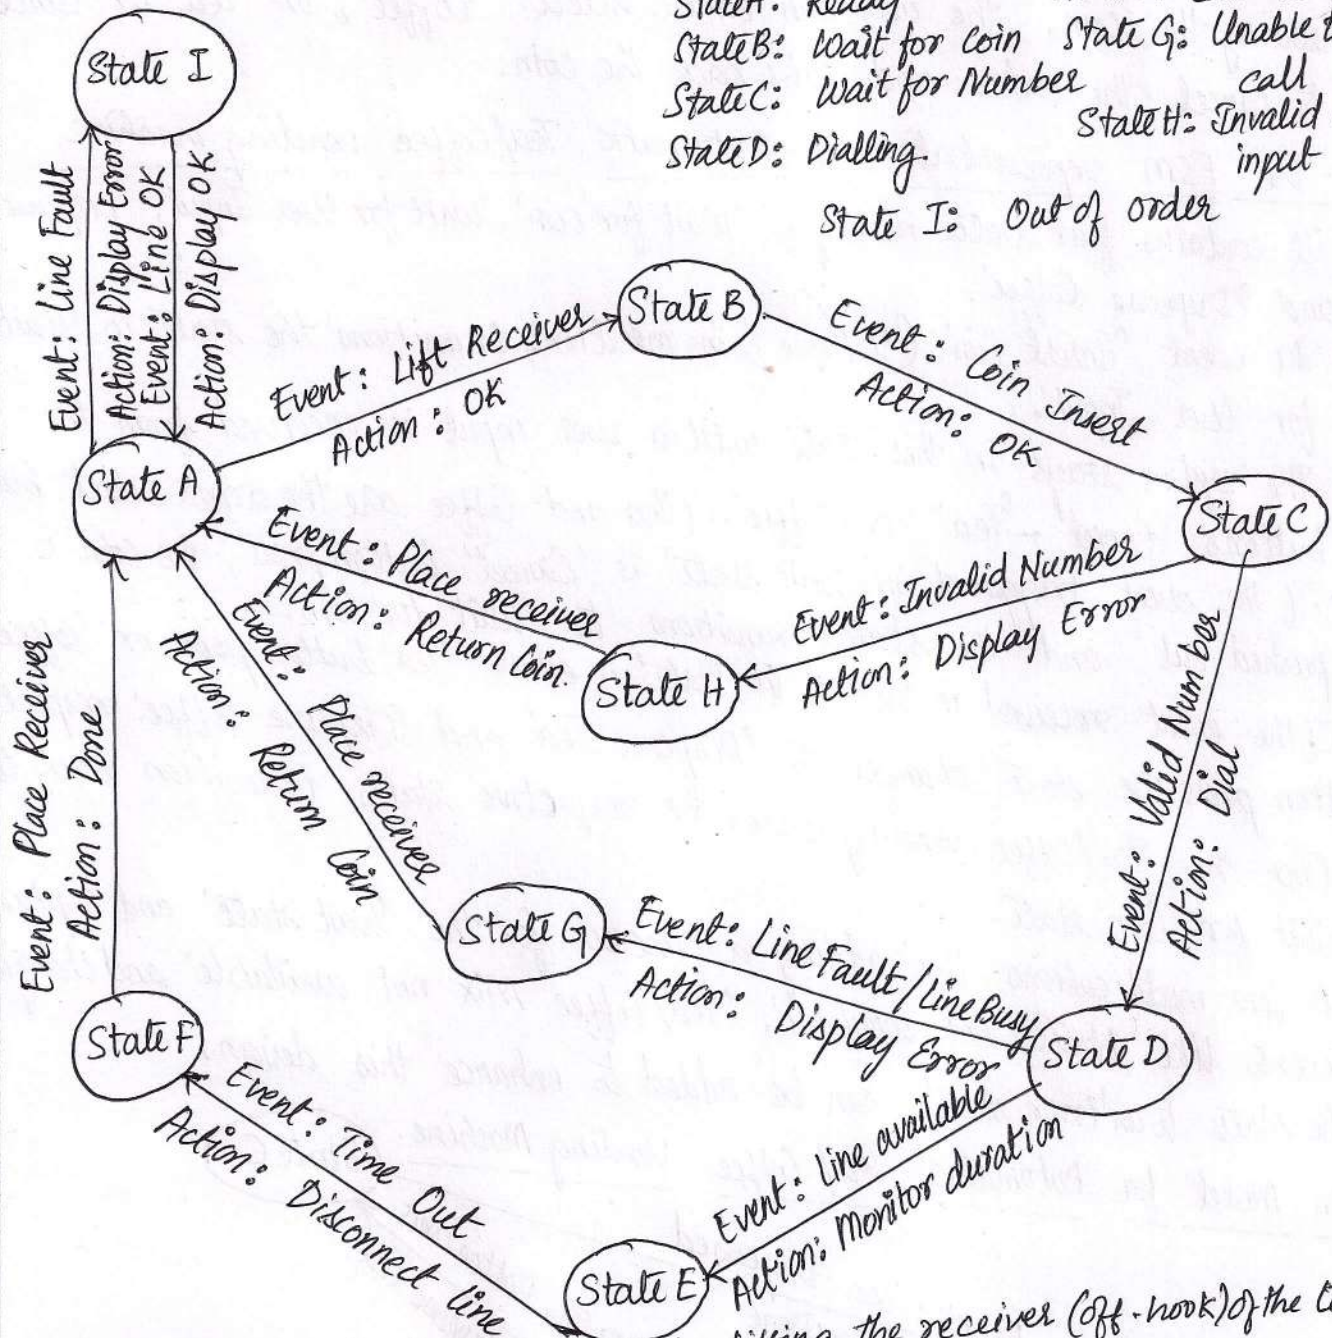 State A: Ready
State B: Wait for coin
State C: Wait for Number
State D: Dialling.
State G: Unable
call
State H: Invalid
input
State I: Out of order
State I
Event: Line Fault
Action: Display Error
Event: Line OK
Action: Display OK
State A
Event: Lift Receiver
Action: OK
State B
Event: Coin Insert
Action: OK
State C
Event: Invalid Number
Action: Display Error
State H
Event: Place receiver
Action: Return Coin.
Event: Valid Number
Action: Dial
State D
Event: Line Fault/Line Busy
Action: Display Error
State G
Event: Place receiver
Action: Return Coin
Event: Line available
Action: Monitor duration
State E
Event: Time Out
Action: Disconnect line
State F
Event: Place Receiver
Action: Done
the receiver (off-hook) of the